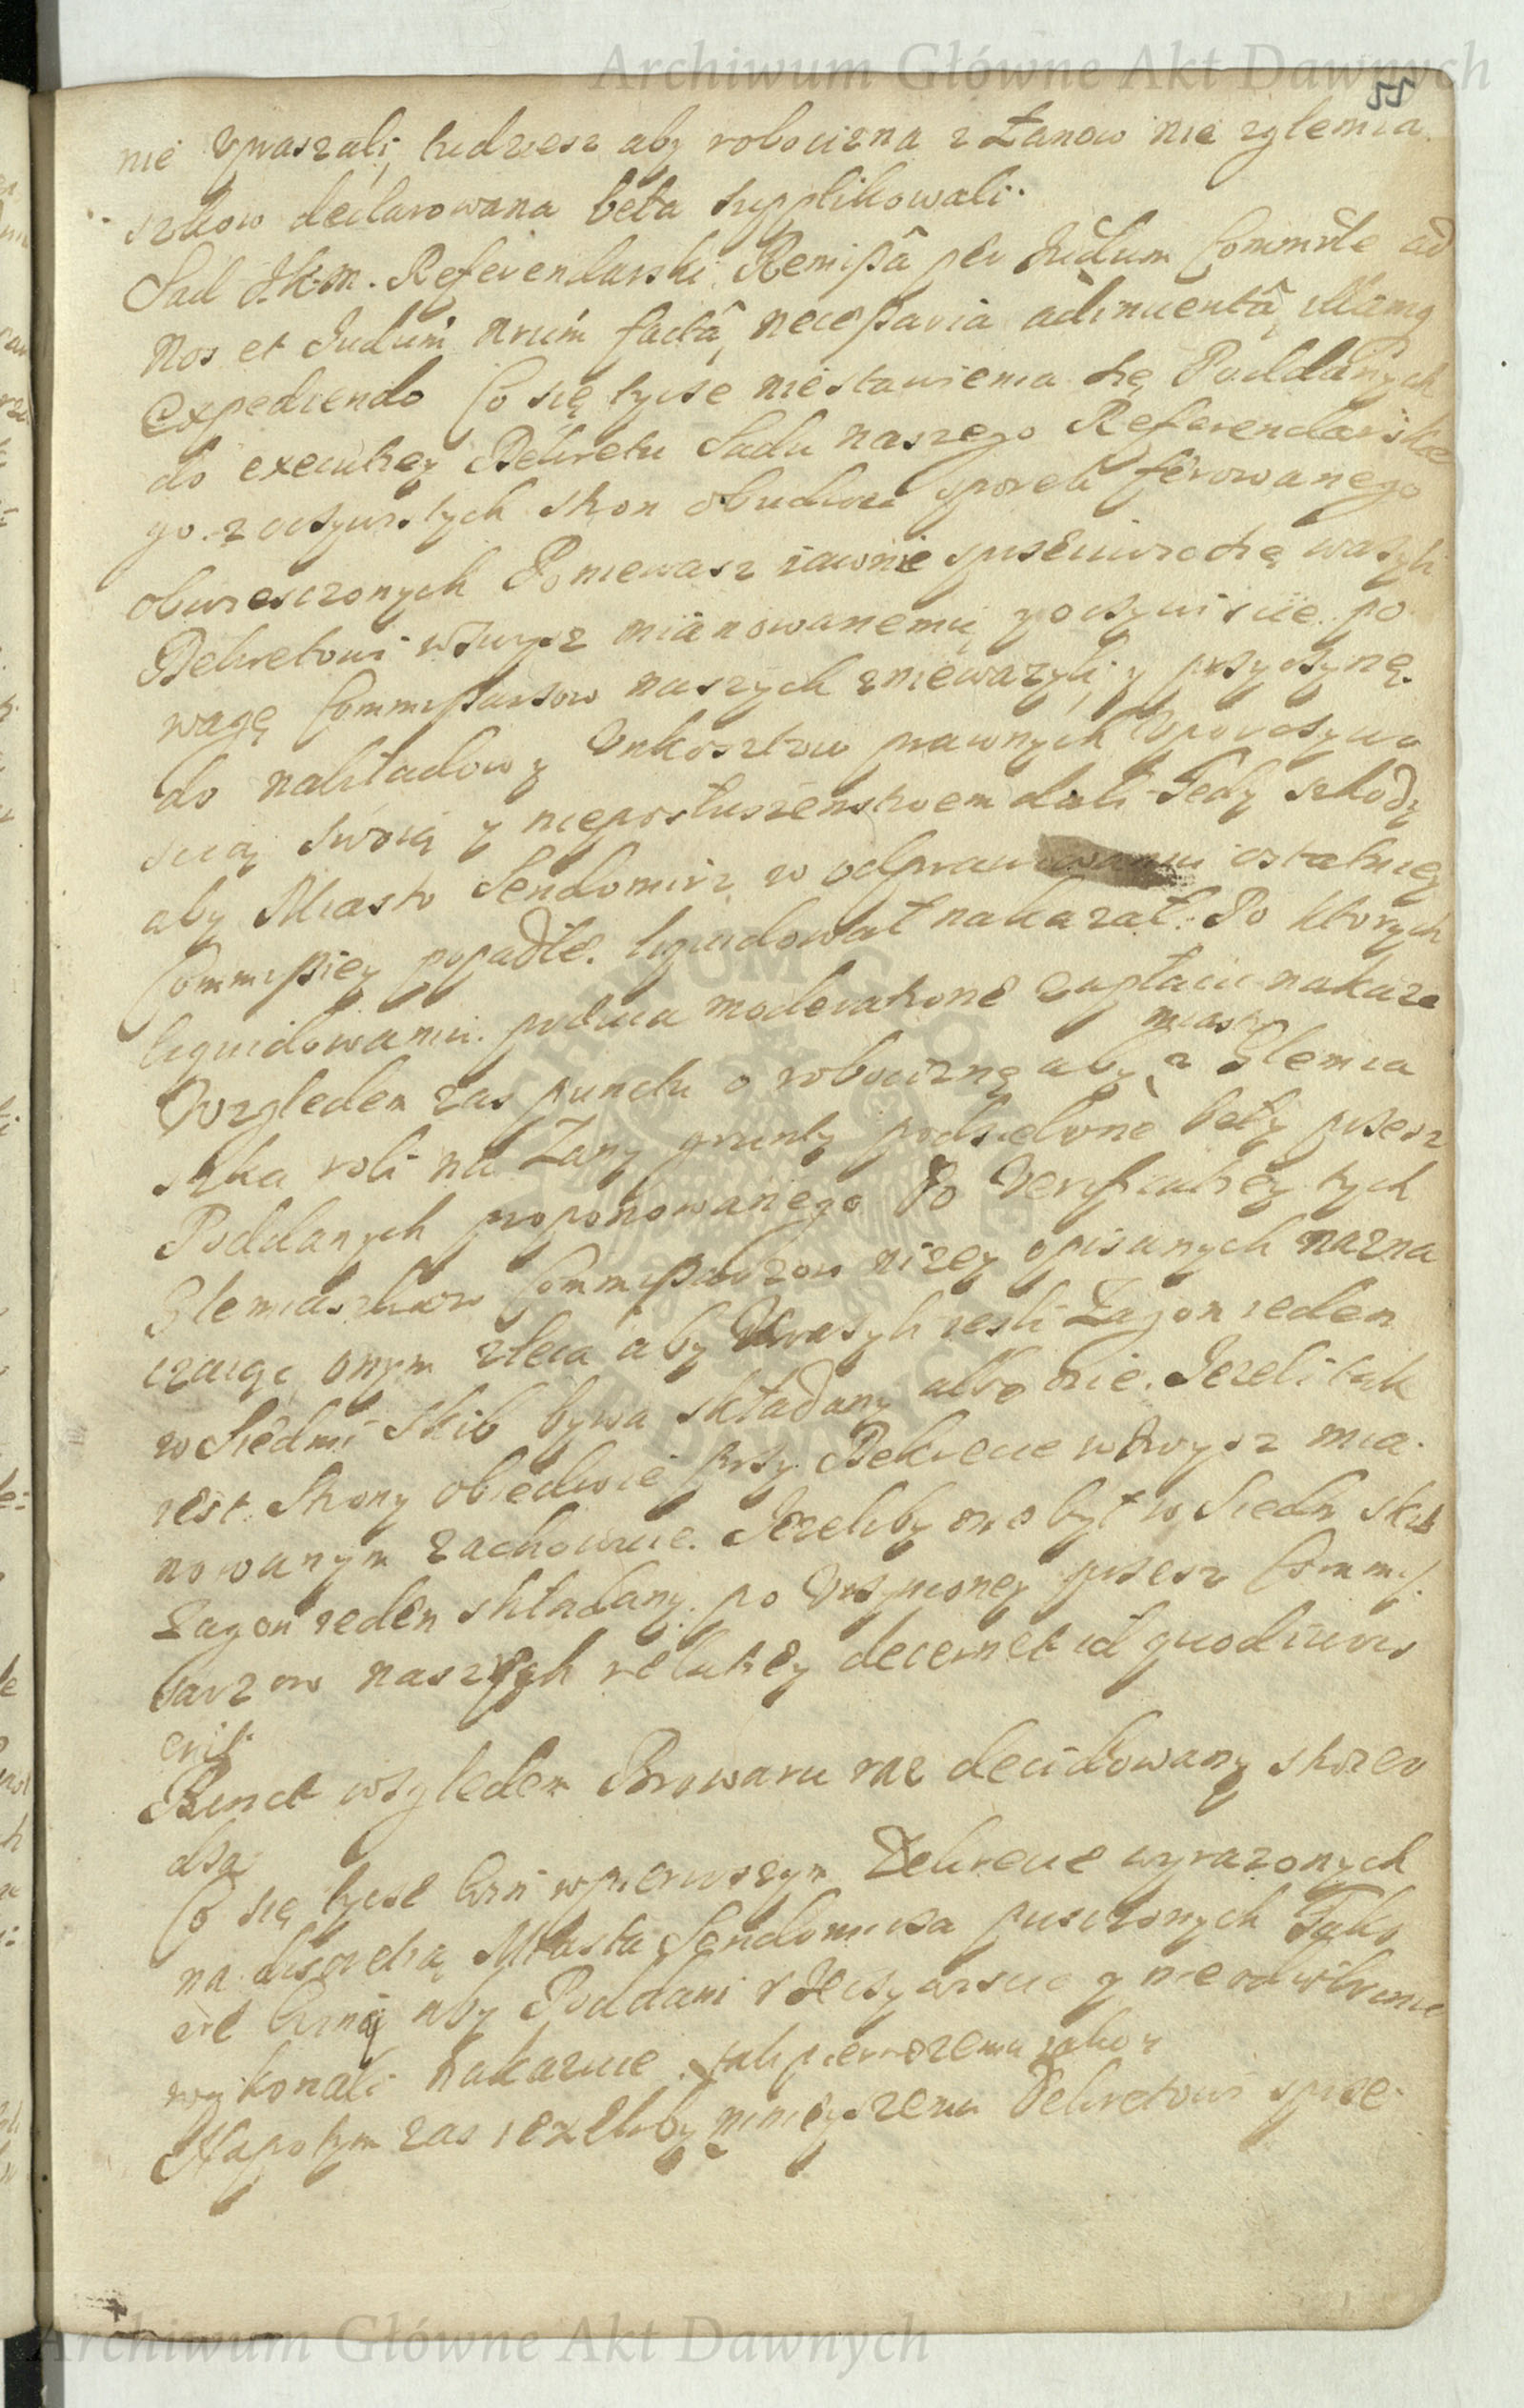 Archiwum Główne Akt Dawnych
55
nie upraszali, tudziesz aby robocizna z Łanow nie zglemia
szkow declarowana beła supplikowali.
Sąd J.K.M. Referendarski Remissâ per Judium Commrle ad
Nos et Judium nrum factâ, necessaria adinuentâ, Mamą
Expediendo Co się tycse niestawienia się Poddanych
do execuhey Dekretu Sadu naszego Referendarskie
go. z oczywistych stron obudwu sporek ferowanego
obwiesczonych Poniewasz iawnie spszeciwiedię wasyli
Dekretowi wswysz mianowanemu, y oczywiscie po
wagę Commissarsow naszych zniewazyli, y pszyczynę
do nakładow y Unkosztow prawnych Uporczywo
scią swoią y nieposłuszenstwem dali Tedy szkody
aby Miasto Sendomirz w odprawowaniu ostatniey
Commissiey popadłe. liquidował nakazał. Po ktorych
liquidowaniu. podług moderatione zapłacic nakaze
Względem zas punctu o robociznę aby z Glemia
miast
szka roli na Łany grunty podzielone beły pszesz
Poddanych proponowanego Do Verificatiey tych
Glemiaszkow Commissarzow nizey opisanych nazna
czaiąc onym zleca aby Uwazyli iesli Zagon ieden
w Siedmi Skib bywa składany albo nie. Jezeli tak
iest Strony obiedwie pszy Dekrecie wswysz mia
nowanym zachowuie. Jezeliby nie był w Siedm skib
Zagon ieden składany. po Uczynioney pszesz Commis
sarzow naszych relatiey decernet id quod iuris
erit.
Punct względem Browaru raz decidowany
Co się tycse Grzywien w pierwszym Dekrecie wyrazonych
na discretią Miasta Sendomirza pusczonych Tako
we aby Poddani rzeczywiscie y nieodwłocznie
wykonali nakazuie. tak pierwszemu iako y
Napotym zas iezeliby ninieyszemu Dekretowi spsze
Archiwum Główne Akt Dawnych